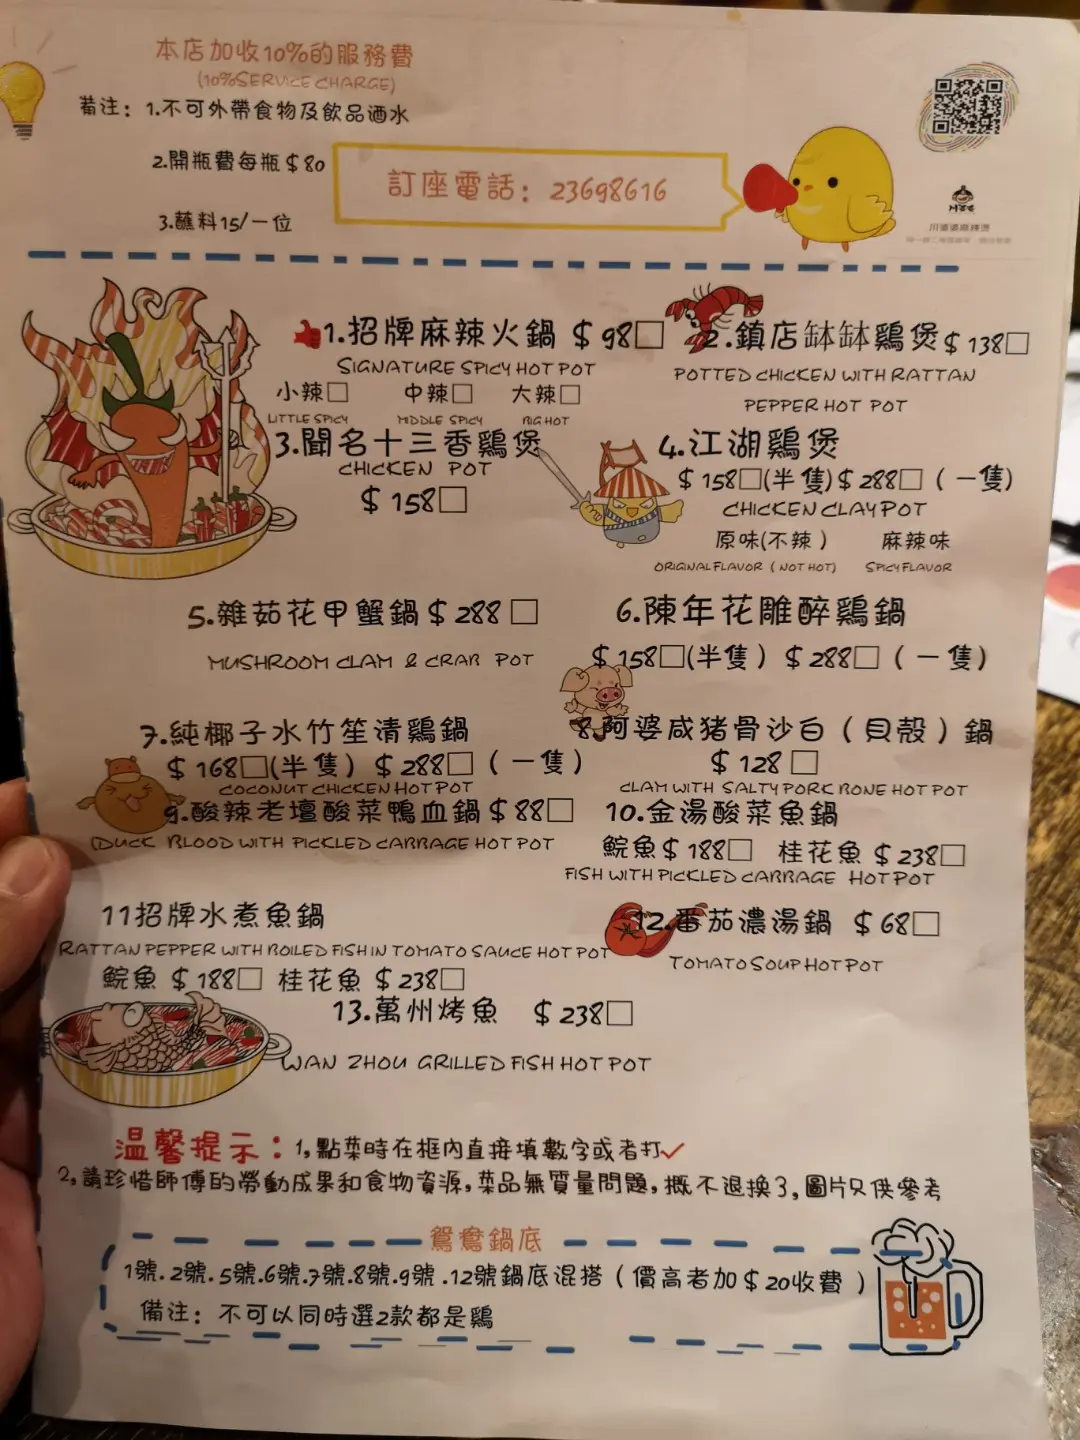 本店加收10%的服務費
(10%SERVICE CHARGE)
備注：1.不可外帶食物及飲品酒水
2.開瓶費每瓶$80
訂座電話：23698616
3.蘸料15/一位
川婆婆麻辣煲
1.招牌麻辣火鍋 $98□
SIGNATURE SPICY HOT POT
小辣□ 中辣□ 大辣□
LITTLE SPICY MIDDLE SPICY BIG HOT
2.鎮店缽缽鷄煲$138□
POTTED CHICKEN WITH RATTAN
PEPPER HOT POT
3.聞名十三香鷄煲
CHICKEN POT
$158□
4.江湖鷄煲
$158□(半隻)$288□（一隻)
CHICKEN CLAY POT
原味(不辣） 麻辣味
ORIGINAL FLAVOR (NOT HOT) SPICY FLAVOR
5.雜茹花甲蟹鍋$288□
MUSHROOM CLAM & CRAB POT
6.陳年花雕醉鷄鍋
$158□(半隻）$288□（一隻）
7.純椰子水竹笙清鷄鍋
$168□(半隻）$288□（一隻）
COCONUT CHICKEN HOT POT
8.阿婆咸猪骨沙白（貝殼）鍋
$128□
CLAM WITH SALTY PORK BONE HOT POT
9.酸辣老壇酸菜鴨血鍋$88□
(DUCK BLOOD WITH PICKLED CABBAGE HOT POT
10.金湯酸菜魚鍋
鯇魚$188□ 桂花魚$238□
FISH WITH PICKLED CABBAGE HOT POT
11招牌水煮魚鍋
RATTAN PEPPER WITH BOILED FISH IN TOMATO SAUCE HOT POT
鯇魚 $188□ 桂花魚 $238□
12.番茄濃湯鍋 $68□
TOMATO SOUP HOT POT
13.萬州烤魚 $238□
WAN ZHOU GRILLED FISH HOT POT
温馨提示：1,點菜時在框內直接填數字或者打✓
2,請珍惜師傅的勞動成果和食物資源,菜品無質量問題,概不退換3,圖片只供參考
鴛鴦鍋底
1號.2號.5號.6號.7號.8號.9號.12號鍋底混搭（價高者加$20收費）
備注：不可以同時選2款都是鷄